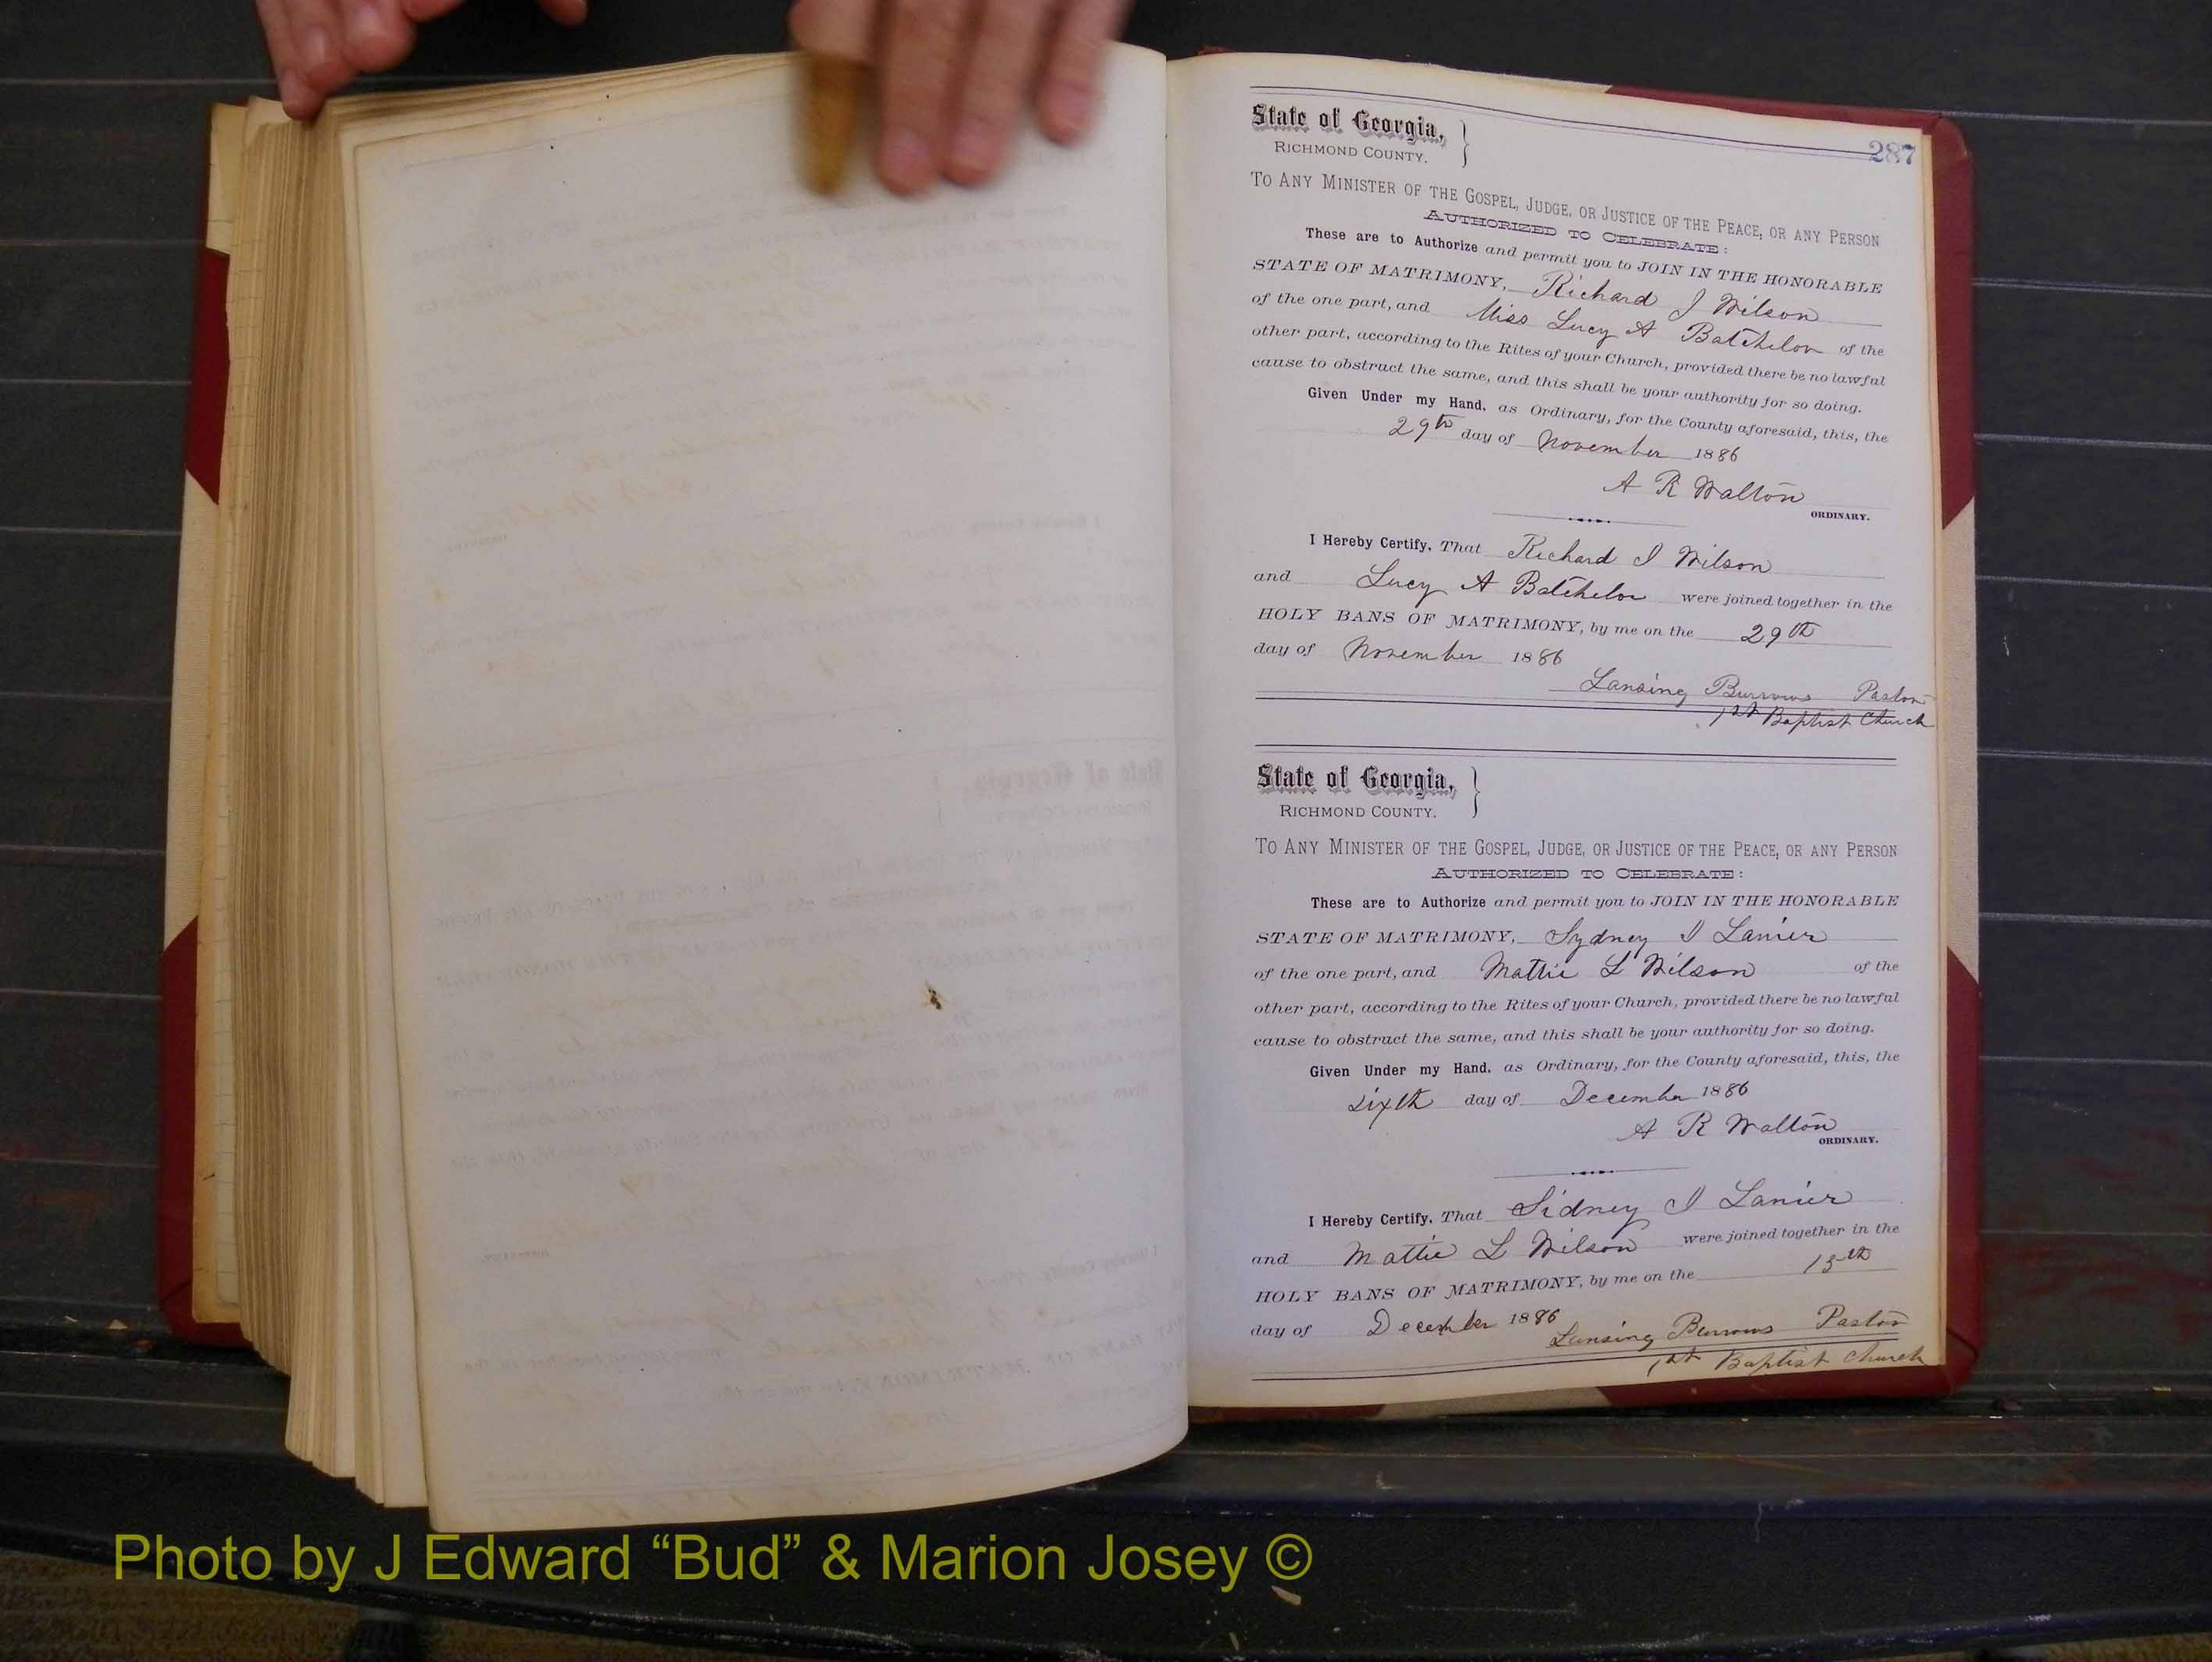 287
State of Georgia,
RICHMOND COUNTY.
TO ANY MINISTER OF THE GOSPEL, JUDGE, OR JUSTICE OF THE PEACE, OR ANY PERSON
AUTHORIZED TO CELEBRATE:
These are to Authorize and permit you to JOIN IN THE HONORABLE
STATE OF MATRIMONY, Richard J Wilson
of the one part, and Miss Lucy A Batchelor of the
other part, according to the Rites of your Church, provided there be no lawful
cause to obstruct the same, and this shall be your authority for so doing.
Given Under my Hand, as Ordinary, for the County aforesaid, this, the
29th day of November 1886
A R Walton
ORDINARY.
I Hereby Certify, That Richard J Wilson
and Lucy A Batchelor were joined together in the
HOLY BANS OF MATRIMONY, by me on the 29th
day of November 1886
Lansing Burrows Pastor
1st Baptist Church
State of Georgia,
RICHMOND COUNTY.
TO ANY MINISTER OF THE GOSPEL, JUDGE, OR JUSTICE OF THE PEACE, OR ANY PERSON
AUTHORIZED TO CELEBRATE:
These are to Authorize and permit you to JOIN IN THE HONORABLE
STATE OF MATRIMONY, Sydney J Lanier
of the one part, and Mattie L Wilson of the
other part, according to the Rites of your Church, provided there be no lawful
cause to obstruct the same, and this shall be your authority for so doing.
Given Under my Hand, as Ordinary, for the County aforesaid, this, the
sixth day of December 1886
A R Walton
ORDINARY.
I Hereby Certify, That Sidney J Lanier
and Mattie L Wilson were joined together in the
HOLY BANS OF MATRIMONY, by me on the
day of December 1886
Lansing Burrows Pastor
1st Baptist Church
Photo by J Edward “Bud” & Marion Josey ©